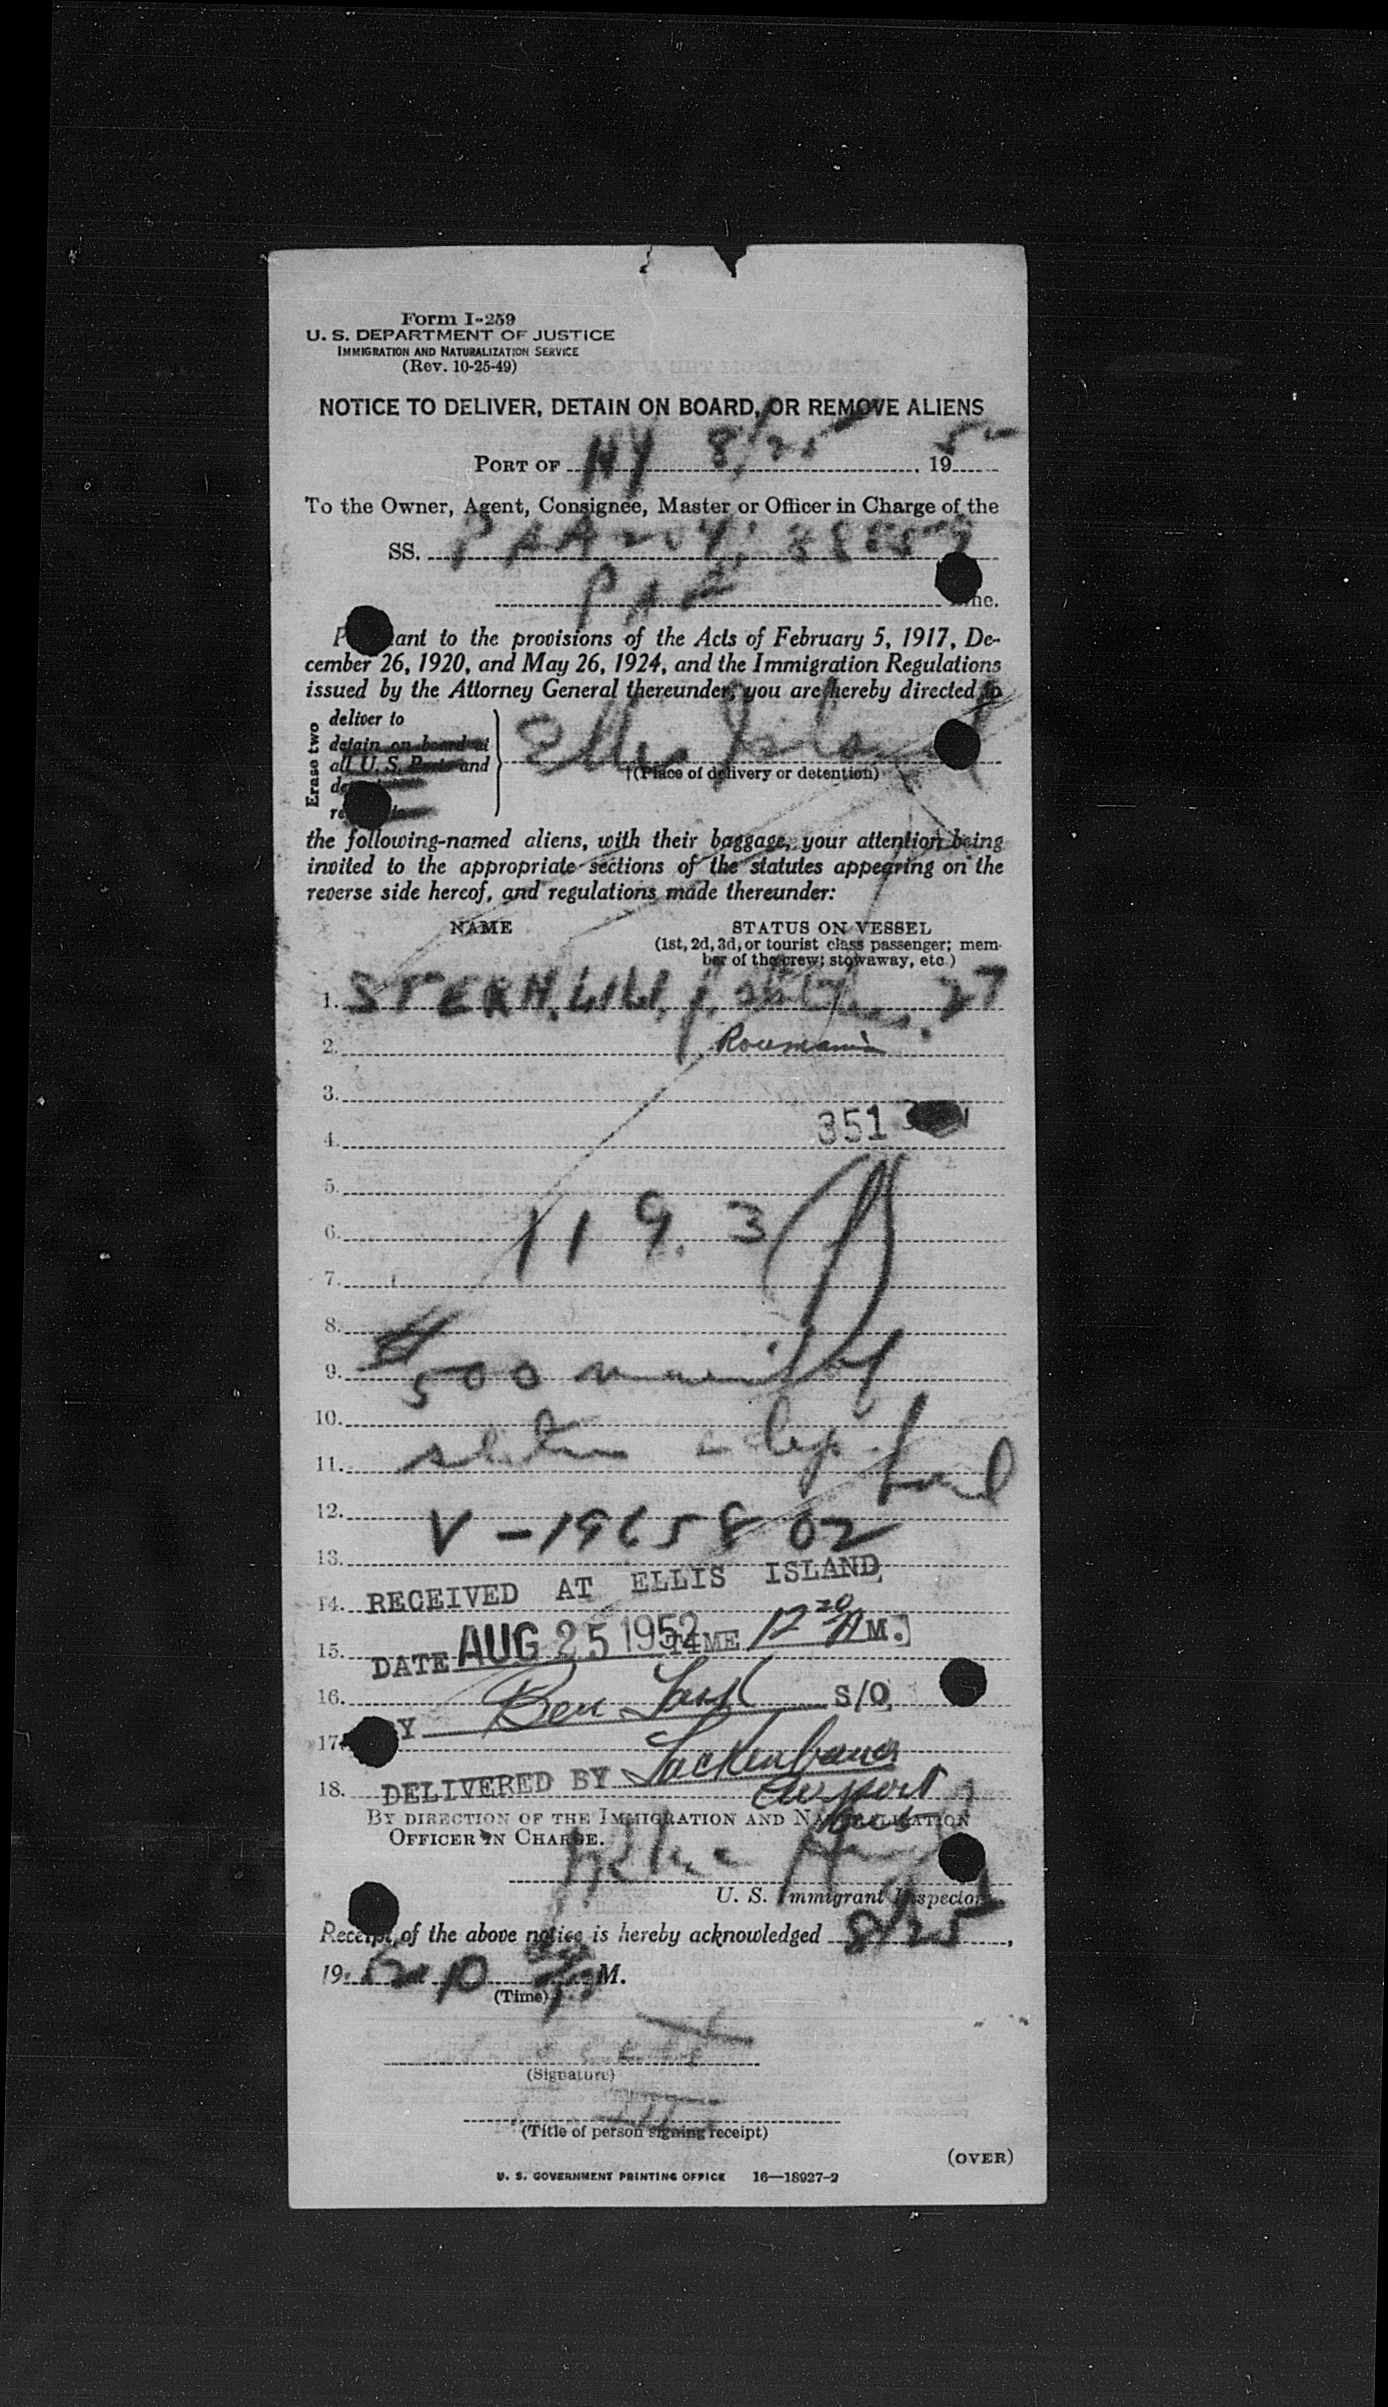 Form I-259
U. S. DEPARTMENT OF JUSTICE
IMMIGRATION AND NATURALIZATION SERVICE
(Rev. 10-25-49)
NOTICE TO DELIVER, DETAIN ON BOARD, OR REMOVE ALIENS
PORT OF NY 8/25, 195
To the Owner, Agent, Consignee, Master or Officer in Charge of the
SS. PAA
PAA
ant to the provisions of the Acts of February 5, 1917, De-
cember 26, 1920, and May 26, 1924, and the Immigration Regulations
issued by the Attorney General thereunder, you are hereby directed to
Erase two
deliver to
detain on board at
all U. S. Ports and
Ellis Island
†(Place of delivery or detention)
the following-named aliens, with their baggage, your attention being
invited to the appropriate sections of the statutes appearing on the
reverse side hereof, and regulations made thereunder:
NAME STATUS ON VESSEL
(1st, 2d, 3d, or tourist class passenger; mem-
ber of the crew; stowaway, etc.)
1. STERN, LILI, 27
2. Roumania
3.
4. 351
5.
6. 119.3
7.
8.
9. $500
10.
11.
12.
13. V-1965802
14. RECEIVED AT ELLIS ISLAND
15. DATE AUG 25 1952 TIME 12 20 M.
16. Ben S/O
17. Y
18. DELIVERED BY Lackenbauer
Airport
BY DIRECTION OF THE IMMIGRATION AND NATURALIZATION
OFFICER IN CHARGE.
U. S. Immigrant Inspector
Receipt of the above notice is hereby acknowledged 8/25,
19 52 M.
(Time)
(Signature)
(Title of person signing receipt)
(OVER)
U. S. GOVERNMENT PRINTING OFFICE 16—18927-2